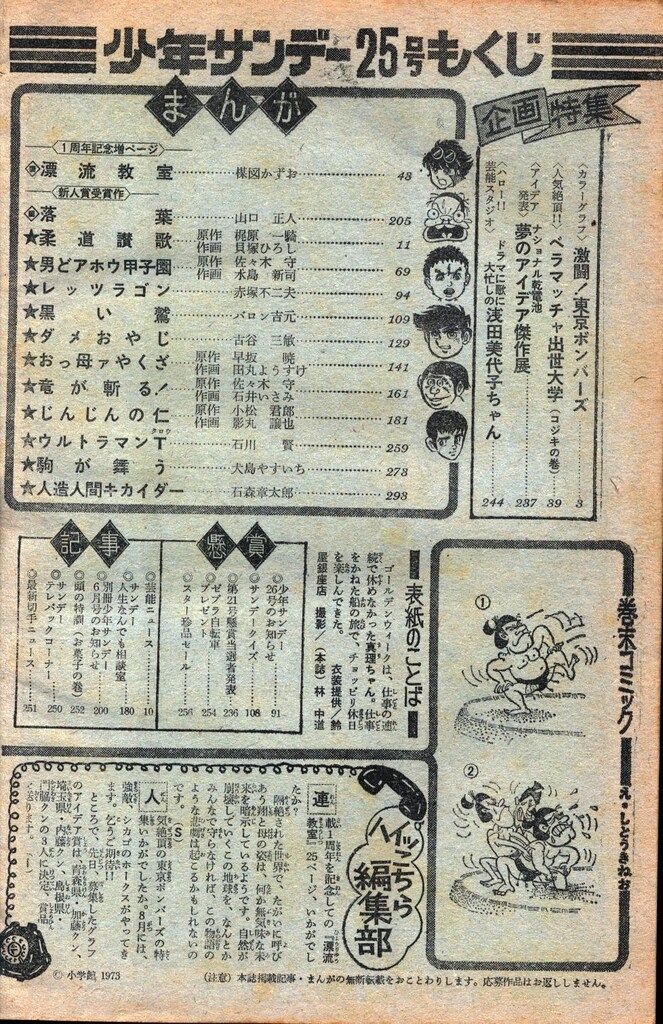 少年サンデー25号もくじ
まんが
〈1周年記念増ページ〉
漂流教室 楳図かずお 43
〈新人賞受賞作〉
落葉 山口正人 205
★柔道讃歌 原作 梶原一騎 作画 貝塚ひろし 11
★男どアホウ甲子園 原作 佐々木守 作画 水島新司 69
★レッツラゴン 赤塚不二夫 94
★黒い鷲 バロン吉元 109
★ダメおやじ 古谷三敏 129
★おっ母ァやくざ 原作 早坂暁 作画 田丸ようすけ 141
★竜が斬る! 原作 佐々木守 作画 石井いさみ 161
★じんじんの仁 原作 小松君郎 作画 影丸譲也 181
★ウルトラマンT タロウ 石川賢 259
★駒が舞う 犬島やすいち 273
★人造人間キカイダー 石森章太郎 293
企画特集
〈カラーグラフ〉激闘!東京ボンバーズ 3
〈人気絶頂!!〉ベラマッチャ出世大学(コジキの巻) 39
〈アイデア発表〉ナショナル乾電池 夢のアイデア傑作展 237
〈ハロー!!芸能スタジオ〉ドラマに歌に大忙しの浅田美代子ちゃん 244
懸賞
◎少年サンデー26号のお知らせ 91
◎サンデークイズ 108
◎第21号懸賞当選者発表 236
◎ゼブラ自転車プレゼント 254
◎スター珍品セール 256
記事
◎芸能ニュース 10
◎サンデー人生なんでも相談室 180
◎別冊少年サンデー6月号のお知らせ 200
◎頭の特訓(お菓子の巻) 252
◎サンデーテレパックコーナー 250
◎最新切手ニュース 251
表紙のことば
ゴールデンウィークは、仕事の連
続で休めなかった真理ちゃん。仕事
をかねた船の旅で、チョッピリ休日
を楽しんできた。 衣装提供/鈴
屋銀座店 撮影/(本誌)林 中道
巻末コミック え・しとうきねお
①
②
ハイッこちら編集部
連載一周年を記念しての『漂流
教室』25ページ、いかがでし
たか?
隔絶された世界で、たがいに呼び
あう翔と母の姿は、何か無気味な未
来を暗示しているようです。自然が
崩壊していくこの地球を、なんとか
みんなで守らなければ、この物語の
ような悲劇は起こるかもしれないの
です。 S
人気絶頂の東京ボンバーズの特
集いかがでしたか。8月には、
強敵、シカゴのホークスがやってき
ます。乞うご期待!!
ところで、先日、募集したグラフ
のアイデア賞は、青森県・加藤クン、
埼玉県・内藤クン、島根県・
工藤クンの3人に決定。賞品
を送ります。
© 小学館 1973
(注意) 本誌掲載記事・まんがの無断転載をおことわりします。応募作品はお返ししません。